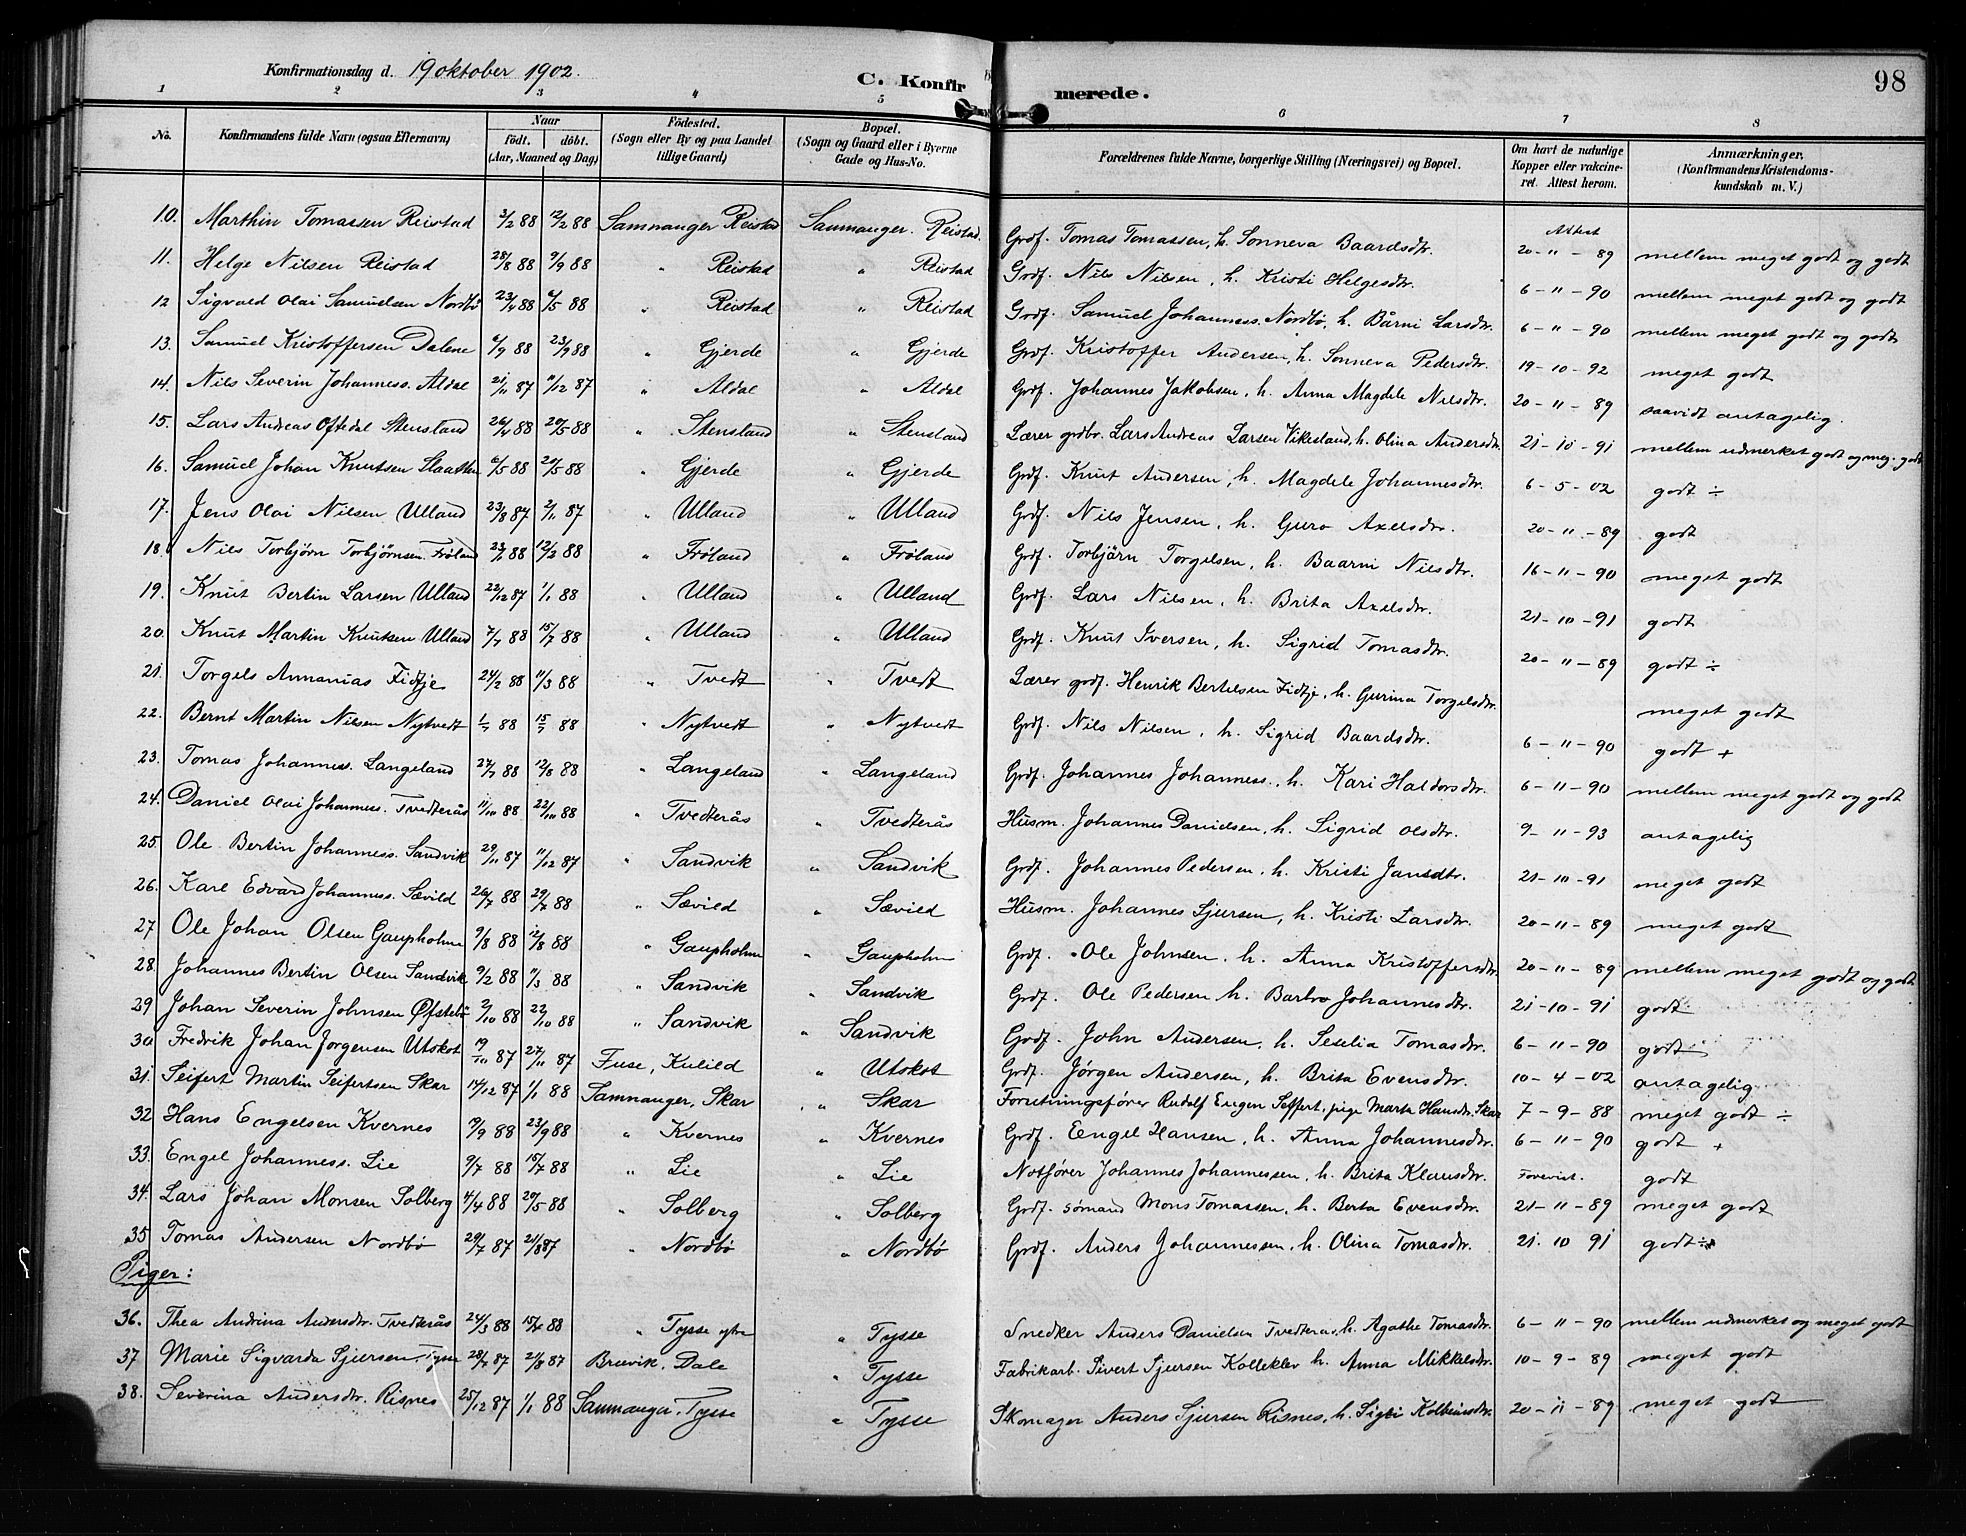 Konfirmationsdag d. 19 oktober 1902. C. Konfirmerede. 98
1 2 3 4 5 6 7 8
No. Konfirmandens fulde Navn (ogsaa Efternavn) Naar födt. döbt. (Aar, Maaned og Dag) Födested. (Sogn eller By og paa Landet tillige Gaard) Bopæl. (Sogn og Gaard eller i Byerne Gade og Hus-No. Forældrenes fulde Navne, borgerlige Stilling (Næringsvei) og Bopæl. Om havt de naturlige Kopper eller vakcineret. Attest herom. Anmærkninger. (Konfirmandens Kristendomskundskab m. V.)
10. Marthin Tomassen Reistad 3/2 88 12/2 88 Samnanger Reistad Samnanger. Reistad. Grdf. Tomas Tomassen, h. Sonneva Baardsdtr. Attest 20-11-89 mellem meget godt og godt
11. Helge Nilsen Reistad 28/8 88 9/9 88 " Reistad " Reistad Grdf. Nils Nilsen, h. Kristi Helgesdtr. 6-11-90 mellem meget godt og godt
12 Sigvald Olai Samuelsen Nordbö 23/4 88 6/5 88 " Reistad " Reistad Grdf. Samuel Johanness. Nordbö, h. Bårni Larsdtr. 6-11-90 mellem meget godt og godt
13. Samuel Kristoffersen Dalene 6/9 88 23/9 88 " Gjerde " Gjerde Grdf. Kristoffer Andersen, h. Sonneva Pedersdtr. 19-10-92 meget godt
14. Nils Severin Johanness. Aldal 21/11 87 11/12 87 " Aldal " Aldal Grdf. Johannes Jakobsen, h. Anna Magdele Nilsdtr. 20-11-89 saavidt antagelig.
15. Lars Andreas Oftedal Stensland 26/4 88 20/5 88 " Stensland " Stensland Lærer grdbr. Lars Andreas Larsen Vikesland, h. Olina Andersdtr. 21-10-91 mellem udmerket godt og meg. godt
16. Samuel Johan Knutsen Slaatten 6/5 88 20/5 88 " Gjerde " Gjerde Grdf. Knut Andersen, h. Magdele Johannesdtr. 6-5-02 godt ÷
17. Jens Olai Nilsen Ulland 23/8 87 2/11 87 " Ulland " Ulland Grdf. Nils Jensen, h. Guro Axelsdtr. 20-11-89 godt
18. Nils Torbjørn Torbjørnsen Frøland 23/1 88 12/2 88 " Frøland " Frøland Grdf. Torbjörn Torgelsen, h. Baarni Nilsdtr. 16-11-90 meget godt
19. Knut Bertin Larsen Ulland 22/12 87 1/1 88 " Ulland " Ulland Grdf. Lars Nilsen, h. Brita Axelsdtr. 21-10-91 godt
20. Knut Martin Knutsen Ulland 7/7 88 15/7 88 " Ulland " Ulland Grdf. Knut Iversen, h. Sigrid Tomasdtr. 20-11-89 godt ÷
21. Torgels Annanias Fidtje 24/2 88 11/3 88 " Tvedt " Tvedt Lærer grdf. Henrik Bertelsen Fidtje, h. Gurina Torgelsdtr. meget godt
22. Bernt Martin Nilsen Nytvedt 1/7 88 15/7 88 " Nytvedt " Nytvedt Grdf. Nils Nilsen, h. Sigrid Baardsdtr. 6-11-90 godt +
23. Tomas Johanness. Langeland 27/7 88 12/8 88 " Langeland " Langeland Grdf. Johannes Johanness., h. Kari Haldorsdtr. 6-11-90 mellem meget godt og godt
24. Daniel Olai Johanness. Tvedterås 11/10 88 22/10 88 " Tvedterås " Tvedterås Husm. Johannes Danielsen, h. Sigrid Olsdtr. 9-11-93 antagelig
25. Ole Bertin Johanness. Sandvik 29/11 87 11/12 87 " Sandvik " Sandvik Grdf. Johannes Pedersen, h. Kristi Jansdtr. 21-10-91 meget godt
26. Karl Edvard Johanness. Sævild 26/7 88 29/7 88 " Sævild " Sævild Husm. Johannes Sjursen, h. Kristi Larsdtr. 20-11-89 meget godt
27 Ole Johan Olsen Gaupholm 9/8 88 12/8 88 " Gaupholm " Gaupholm Grdf. Ole Johnsen, h. Anna Kristoffersdtr. 20-11-89 mellem meget godt og godt
28. Johannes Bertin Olsen Sandvik 9/2 88 11/3 88 " Sandvik " Sandvik Grdf. Ole Pedersen h. Barbro Johannesdtr. 21-10-91 godt
29 Johan Severin Johnsen Øfstebö 2/10 88 22/10 88 " Sandvik " Sandvik Grdf. John Andersen, h. Seselia Tomasdtr. 6-11-90 godt
30 Fredrik Johan Jørgensen Utskot 19/11 87 27/11 87 Fuse, Kulild " Utskot Grdf. Jørgen Andersen, h. Brita Evensdtr. 10-4-02 antagelig
31. Seifert Martin Seifertsen Skar 14/12 87 1/1 88 Samnanger, Skar " Skar Forretningsfører Rudolf Eugen Seffert, pige Marta Hansdtr. Skar 7-9-88 meget godt ÷
32 Hans Engelsen Kvernes 19/9 88 23/9 88 " Kvernes " Kvernes Grdf. Engel Hansen, h. Anna Johannesdtr. 6-11-90 godt +
33. Engel Johanness. Lie 9/7 88 15/7 88 " Lie " Lie Notfører Johannes Johannessen, h. Brita Klausdtr. Forevist. godt
34. Lars Johan Monsen Solberg 4/4 88 20/5 88 " Solberg " Solberg Grdf. sömand Mons Tomassen, h. Berta Evensdtr. 21-11-89 meget godt
35 Tomas Andersen Nordbö 29/7 87 21/8 87 " Nordbö " Nordbö Grdf. Anders Johannessen, h. Olina Tomasdtr. 21. 10 91 godt ÷
Piger:
36. Thea Andrina Andersdtr. Tvedterås 24/3 88 15/4 88 " Tysse ytre " Tysse Snedker Anders Danielsen Tvedterås, h. Agathe Tomasdtr. 6-11-90 mellem udmerket og meget godt
37 Marie Sigvarda Sjursen Tysse 28/7 87 21/8 87 Bruvik, Dale " Tysse Fabrikarb. Sivert Sjursen Kolleklev h. Anna Mikkelsdtr. 10-9-89 meget godt
38. Severina Andersdtr. Risnes 25/12 87 1/1 88 Samnanger, Tysse " Tysse Skomager Anders Sjursen Risnes, h. Sigri Kolbeinsdtr. 20-11-89 meget godt